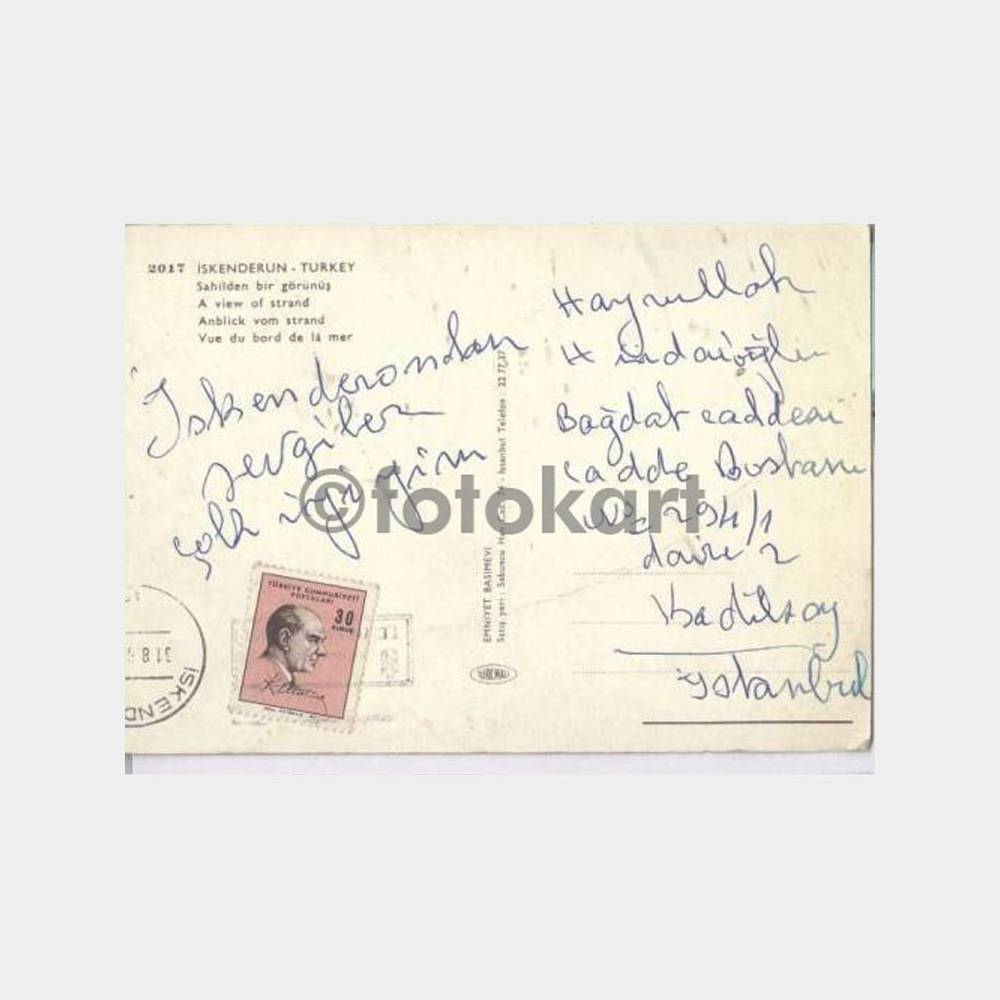 2017 İSKENDERUN - TURKEY
Sahilden bir görünüş
A view of strand
Anblick vom strand
Vue du bord de lá mer
İskenderondan
sevgiler
çok iyiyim
EMNİYET BASIMEVİ
Satış yeri: Sabuncu Han İstanbul Telefon: 22 77 37
Hayrullah
Hüdaioğlu
Bağdat caddesi
cadde Bostanı
No 294/1
daire 2
Kadıköy
İstanbul
TÜRKİYE CUMHURİYETİ
POSTALARI
30
KURUŞ
K. Atatürk
31 8
İSKEND
©fotokart